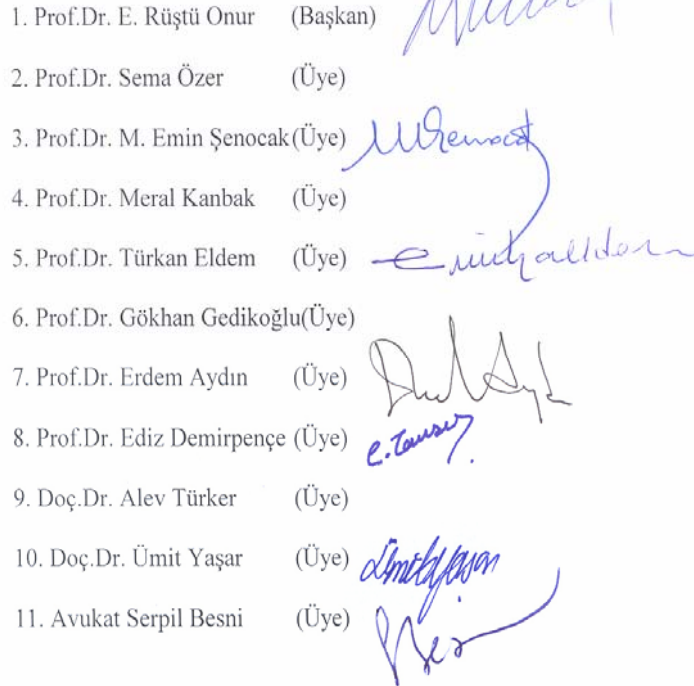 1. Prof.Dr. E. Rüştü Onur (Başkan)
2. Prof.Dr. Sema Özer (Üye)
3. Prof.Dr. M. Emin Şenocak(Üye)
4. Prof.Dr. Meral Kanbak (Üye)
5. Prof.Dr. Türkan Eldem (Üye)
6. Prof.Dr. Gökhan Gedikoğlu(Üye)
7. Prof.Dr. Erdem Aydın (Üye)
8. Prof.Dr. Ediz Demirpençe (Üye)
9. Doç.Dr. Alev Türker (Üye)
10. Doç.Dr. Ümit Yaşar (Üye)
11. Avukat Serpil Besni (Üye)